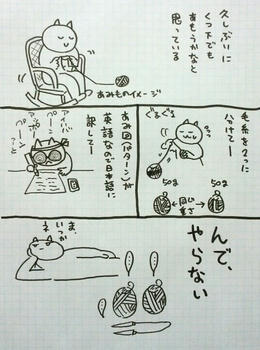 久しぶりに
くつ下でも
あもうかなと
思っている
あみものイメージ
毛糸を2つに
分けてー
ぐるぐる
50g
50g
同じ
重さ
あみ図(パターン)が
英語なので日本語に
訳してー
んで、
やらない
ま、
いっか